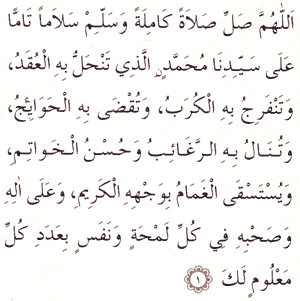 اَللّٰهُمَّ صَلِّ صَلَاةً كَامِلَةً وَسَلِّمْ سَلَاماً تَامًّا
عَلَى سَيِّدِنَا مُحَمَّدٍ ۨ الَّذِي تَنْحَلُّ بِهِ الْعُقَدُ،
وَتَنْفَرِجُ بِهِ الْكُرَبُ، وَتُقْضَى بِهِ الْحَوَائِجُ،
وَتُنَالُ بِهِ الرَّغَائِبُ وَحُسْنُ الْخَوَاتِمِ،
وَيُسْتَسْقَى الْغَمَامُ بِوَجْهِهِ الْكَرِيمِ، وَعَلَى اٰلِهِ
وَصَحْبِهِ فِي كُلِّ لَمْحَةٍ وَنَفَسٍ بِعَدَدِ كُلِّ
مَعْلُومٍ لَكَ ١